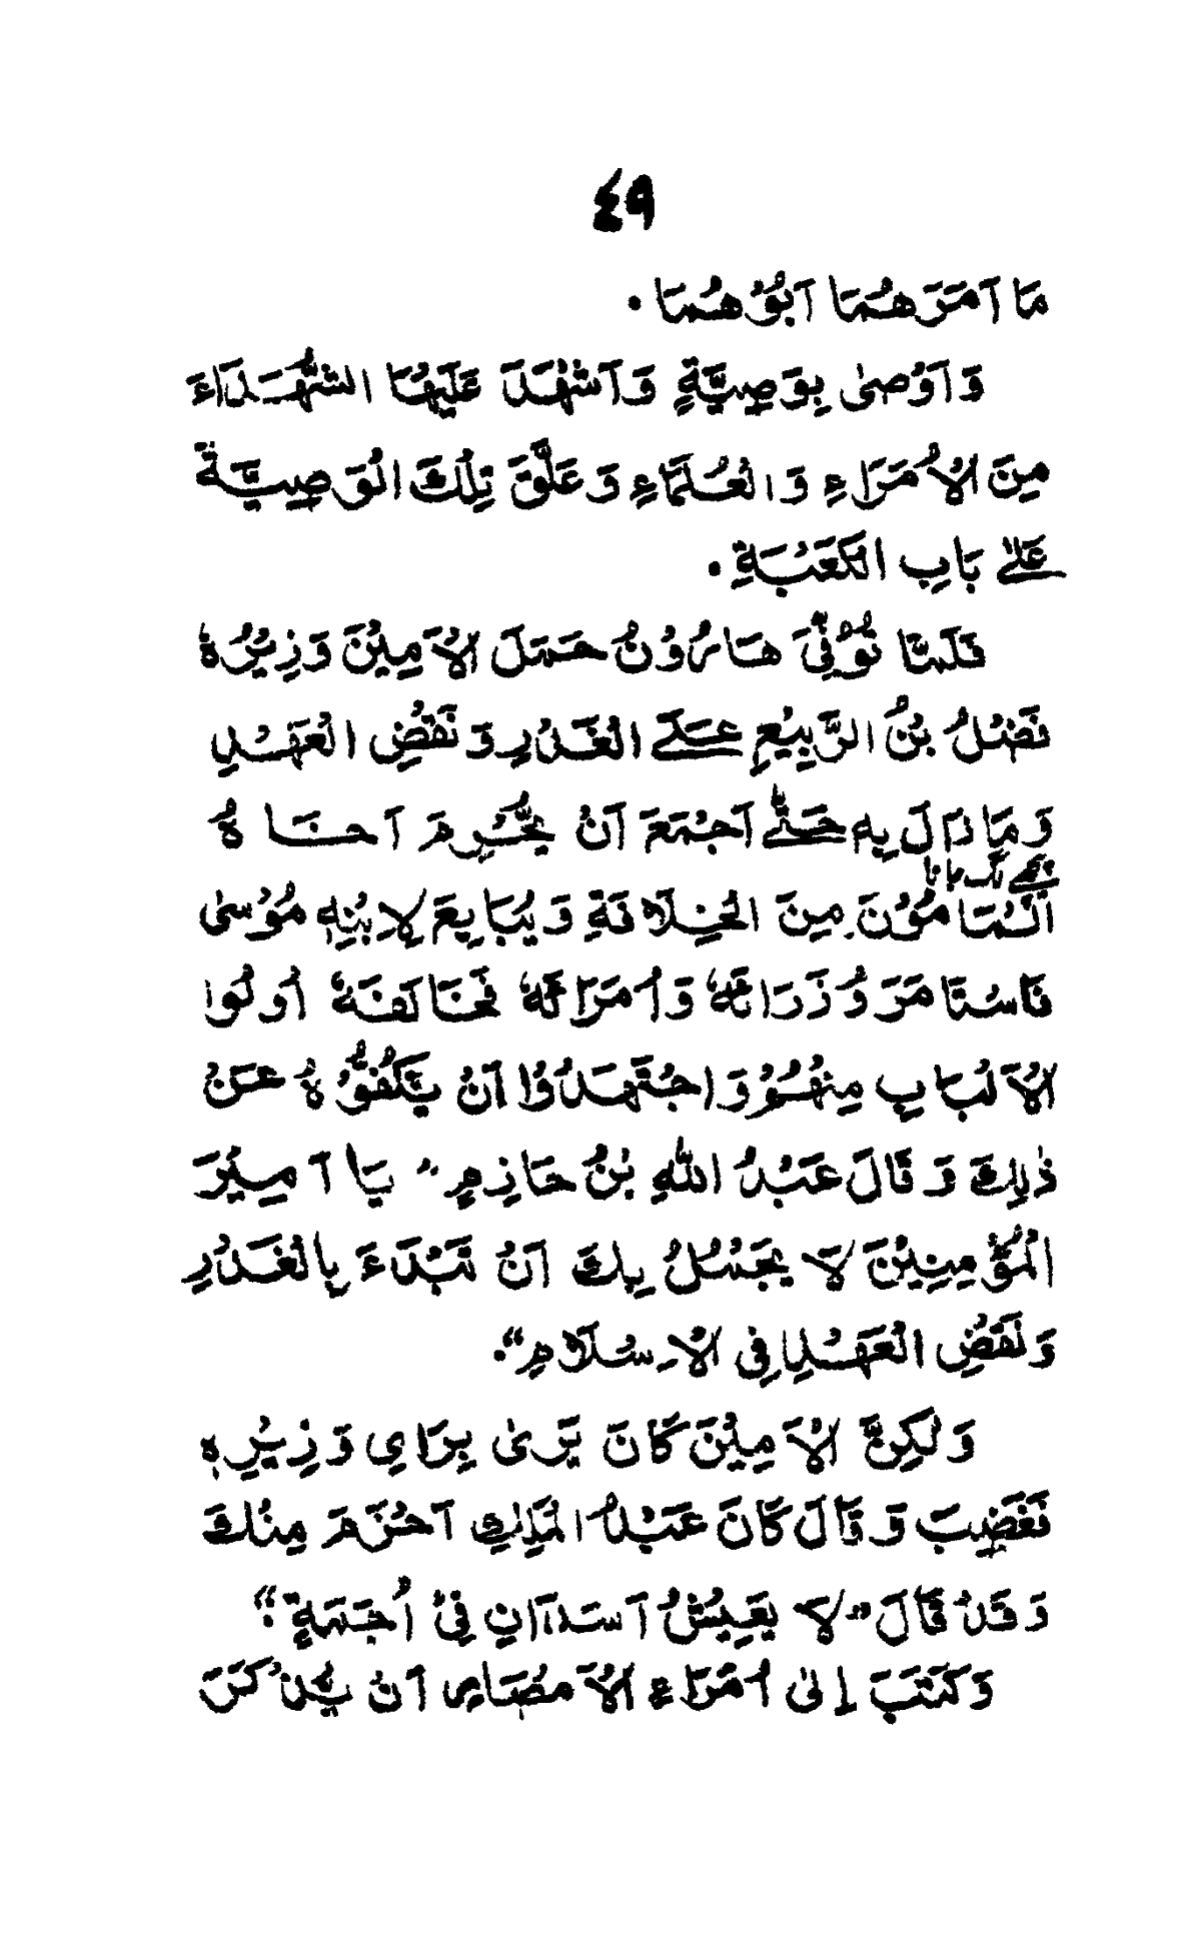 ٤٩
مَا اَمَرَهُمَا اَبُوْهُمَا ۔
وَاَوْصٰى بِوَصِيَّةٍ وَاَشْهَدَ عَلَيْهَا الشُّهَدَاءَ
مِنَ الْاُمَرَاءِ وَالْعُلَمَاءِ وَعَلَّقَ تِلْكَ الْوَصِيَّةَ
عَلٰے بَابِ الْكَعْبَةِ ۔
فَلَمَّا تُوُفِّيَ هَارُوْنُ حَمَلَ الْاَمِيْنَ وَزِيْرُهٗ
فَضْلُ بْنُ الرَّبِيْعِ عَلَے الْغَدْرِ وَنَقْضِ الْعَهْدِ
وَمَا زَالَ بِهٖ حَتّٰے اَجْمَعَ اَنْ يُّحَرِّمَ اَخَاهُ
الْمَامُوْنَ مِنَ الْخِلَافَةِ وَيُبَايِعَ لِاِبْنِهٖ مُوْسٰى
فَاسْتَامَرَ وُزَرَائَهٗ وَاُمَرَائَهٗ فَخَالَفَهٗ اُولُوا
الْاَلْبَابِ مِنْهُمْ وَاجْتَهَدُوْا اَنْ يَّكُفُّوْهُ عَنْ
ذٰلِكَ وَقَالَ عَبْدُ اللهِ بْنُ حَازِمٍ " يَا اَمِيْرَ
الْمُؤْمِنِيْنَ لَا يَجْمُلُ بِكَ اَنْ تَبْدَاءَ بِالْغَدْرِ
وَنَقْضِ الْعَهْدِ فِى الْاِسْلَامِ"۔
وَلٰكِنَّ الْاَمِيْنَ كَانَ يَرٰى بِرَايِ وَزِيْرِهٖ
فَغَضِبَ وَقَالَ كَانَ عَبْدُ الْمَلِكِ اَحْزَمَ مِنْكَ
وَقَدْ قَالَ "لَا يَعِيْشُ اَسَدَانِ فِيْ اُجَمَةٍ"۔
وَكَتَبَ اِلٰى اُمَرَاءِ الْاَمْصَارِ اَنْ يُّذْكَرَ